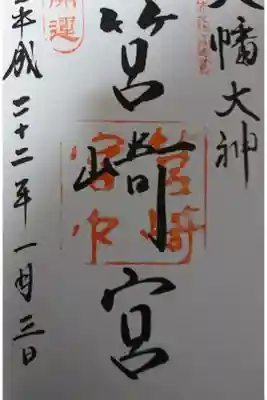 八幡大神
筥崎宮
筥崎宮印
開運
平成二十二年一月三日